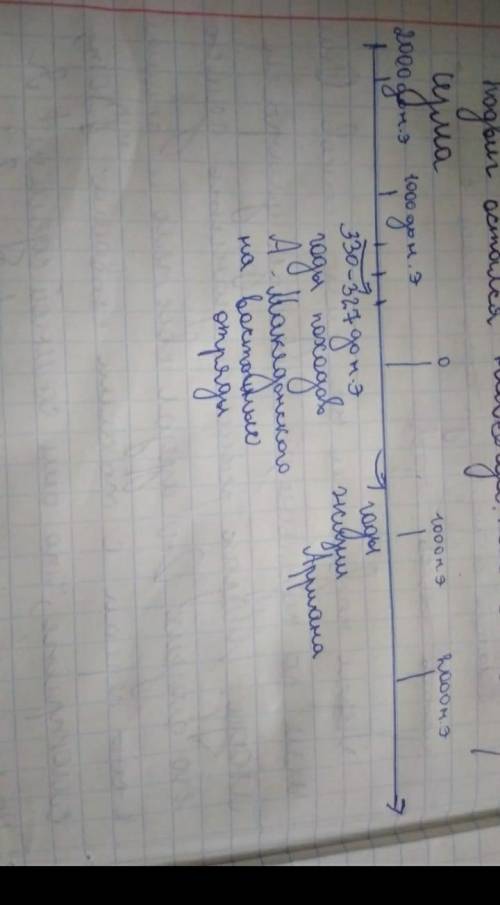 подвиг остался
2000 до н.э 1000 до н.э 0 1000 н.э 2000 н.э
330-327 до н.э
годы походов
А. Македонского
на восточные
отряды
годы
жизни
Арриана